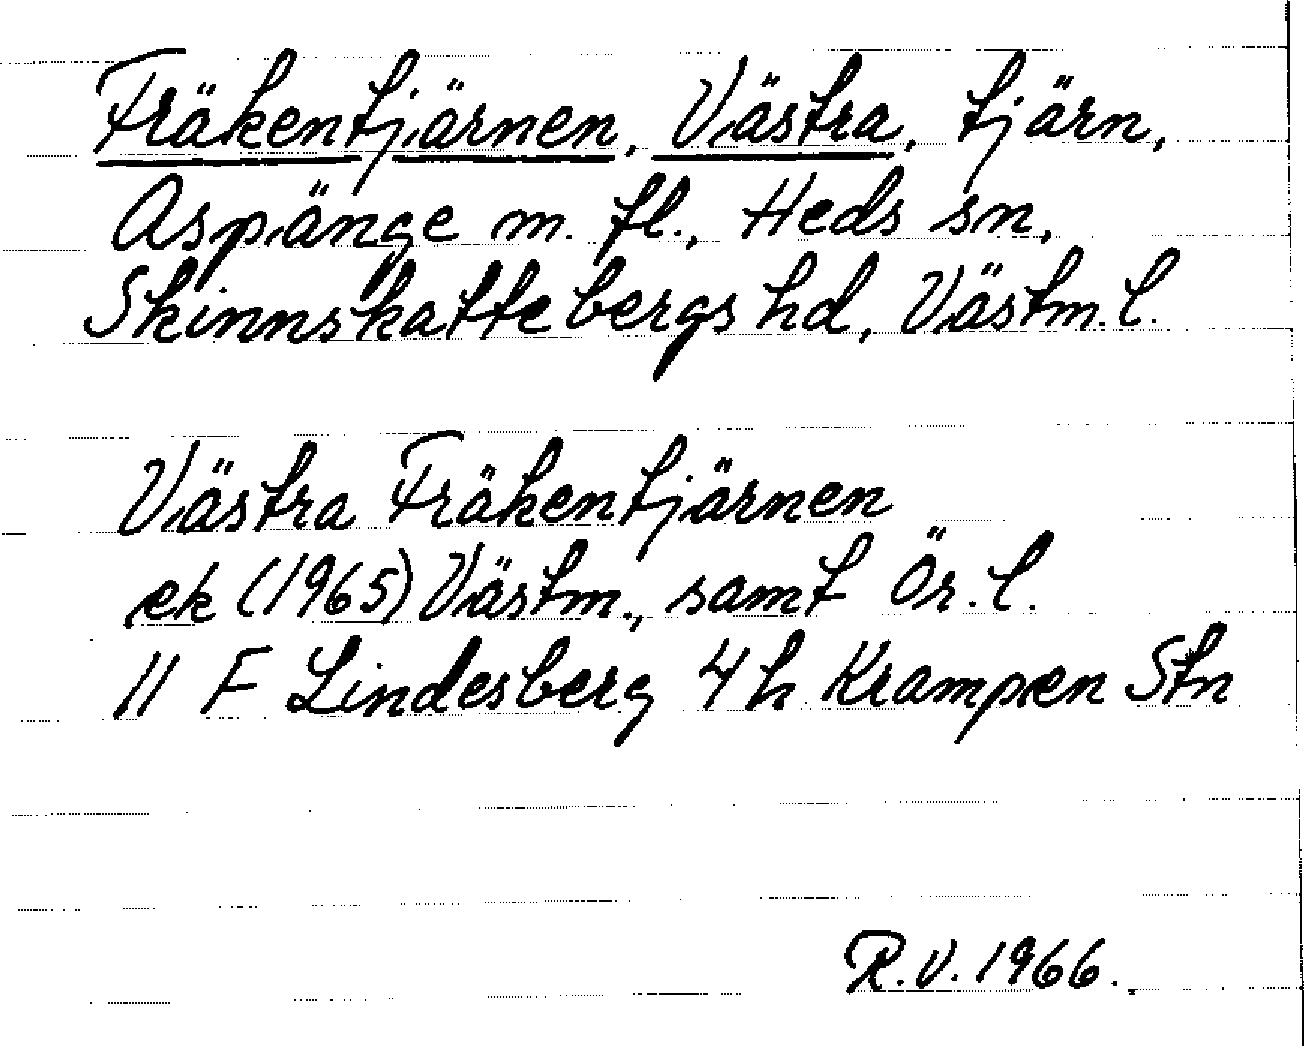 Fräkentjärnen, Västra, tjärn,
Aspänge m. fl., Heds sn,
Skinnskattebergs hd, Västm. l.
Västra Fräkentjärnen
ek (1965) Västm., samt Ör. l.
11 F Lindesberg 4 h Krampen Stn
R.V. 1966.